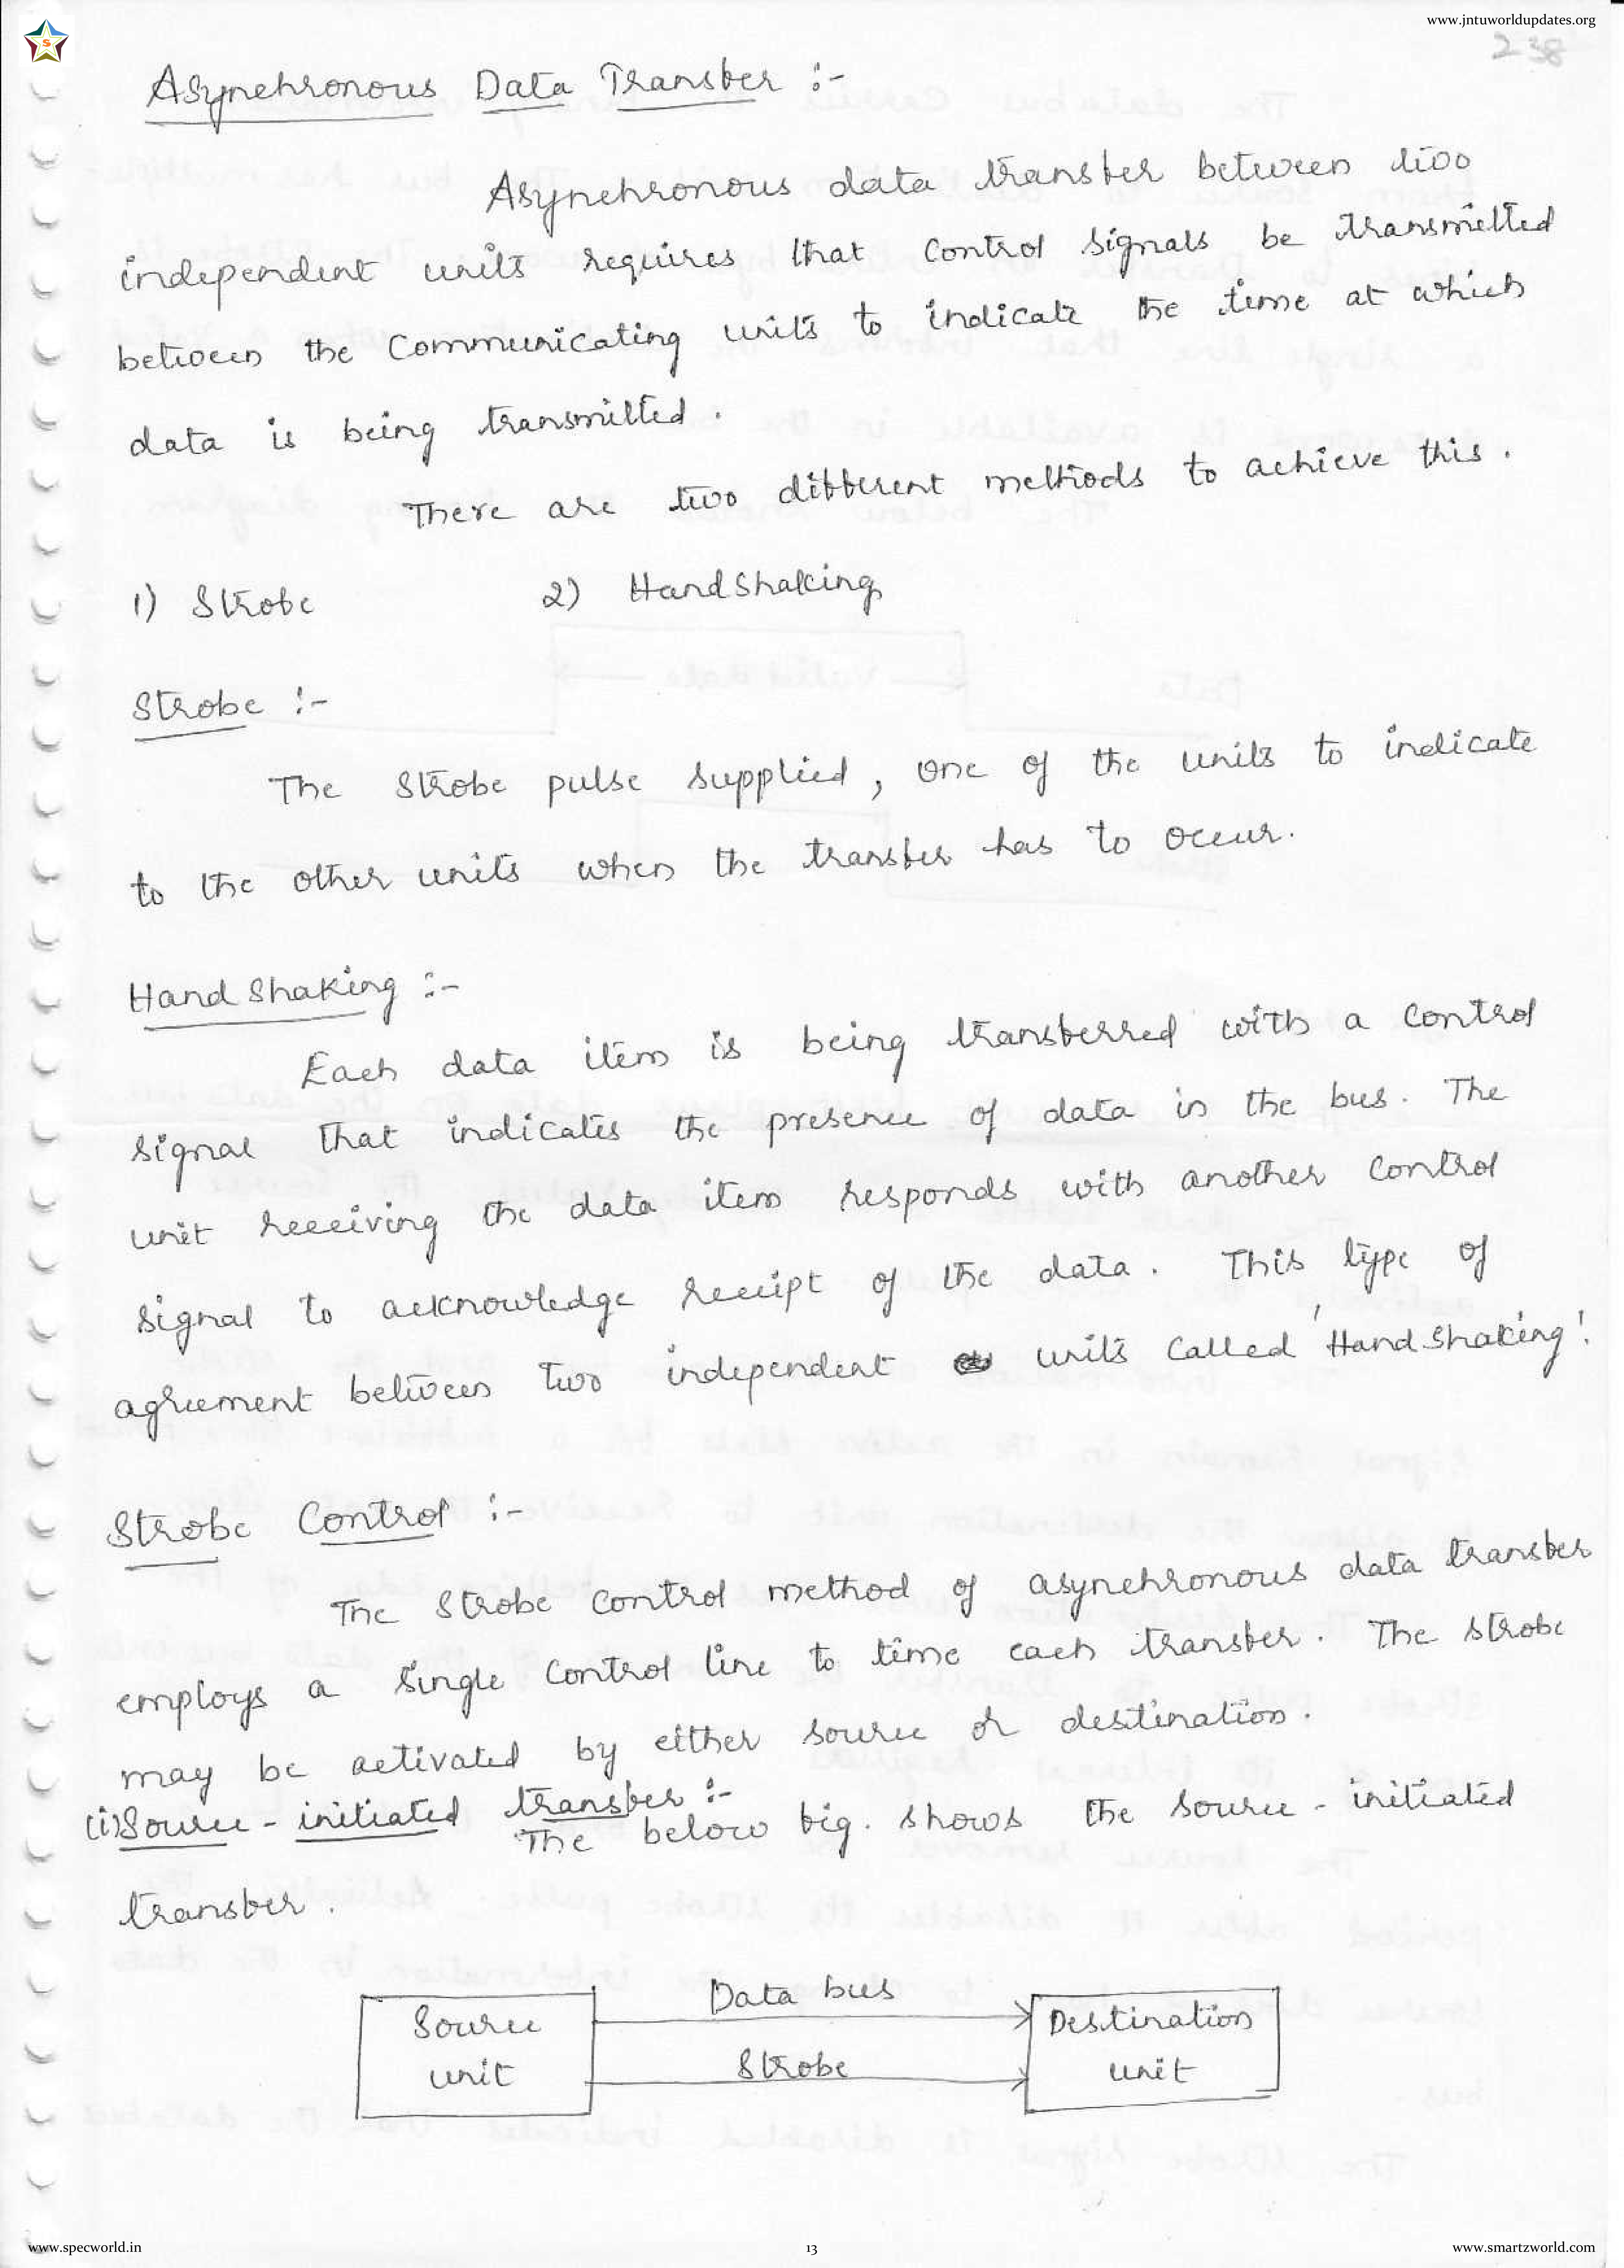 www.jntuworldupdates.org
S
238
Asynchronous Data Transfer :-
Asynchronous data transfer between two
independent units requires that control signals be transmitted
between the communicating units to indicate the time at which
data is being transmitted.
There are two different methods to achieve this.
1) Strobe 2) Handshaking
Strobe :-
The strobe pulse supplied, one of the units to indicate
to the other units when the transfer has to occur.
Hand shaking :-
Each data item is being transferred with a control
signal that indicates the presence of data in the bus. The
unit receiving the data item responds with another control
signal to acknowledge receipt of the data. This type of
agreement between two independent units called 'Handshaking'.
Strobe Control :-
The strobe control method of asynchronous data transfer
employs a single control line to time each transfer. The strobe
may be activated by either source or destination.
(i) Source - initiated transfer :-
The below fig. shows the source - initiated
transfer.
Data bus
Source Destination
unit Strobe unit
www.specworld.in 13 www.smartzworld.com